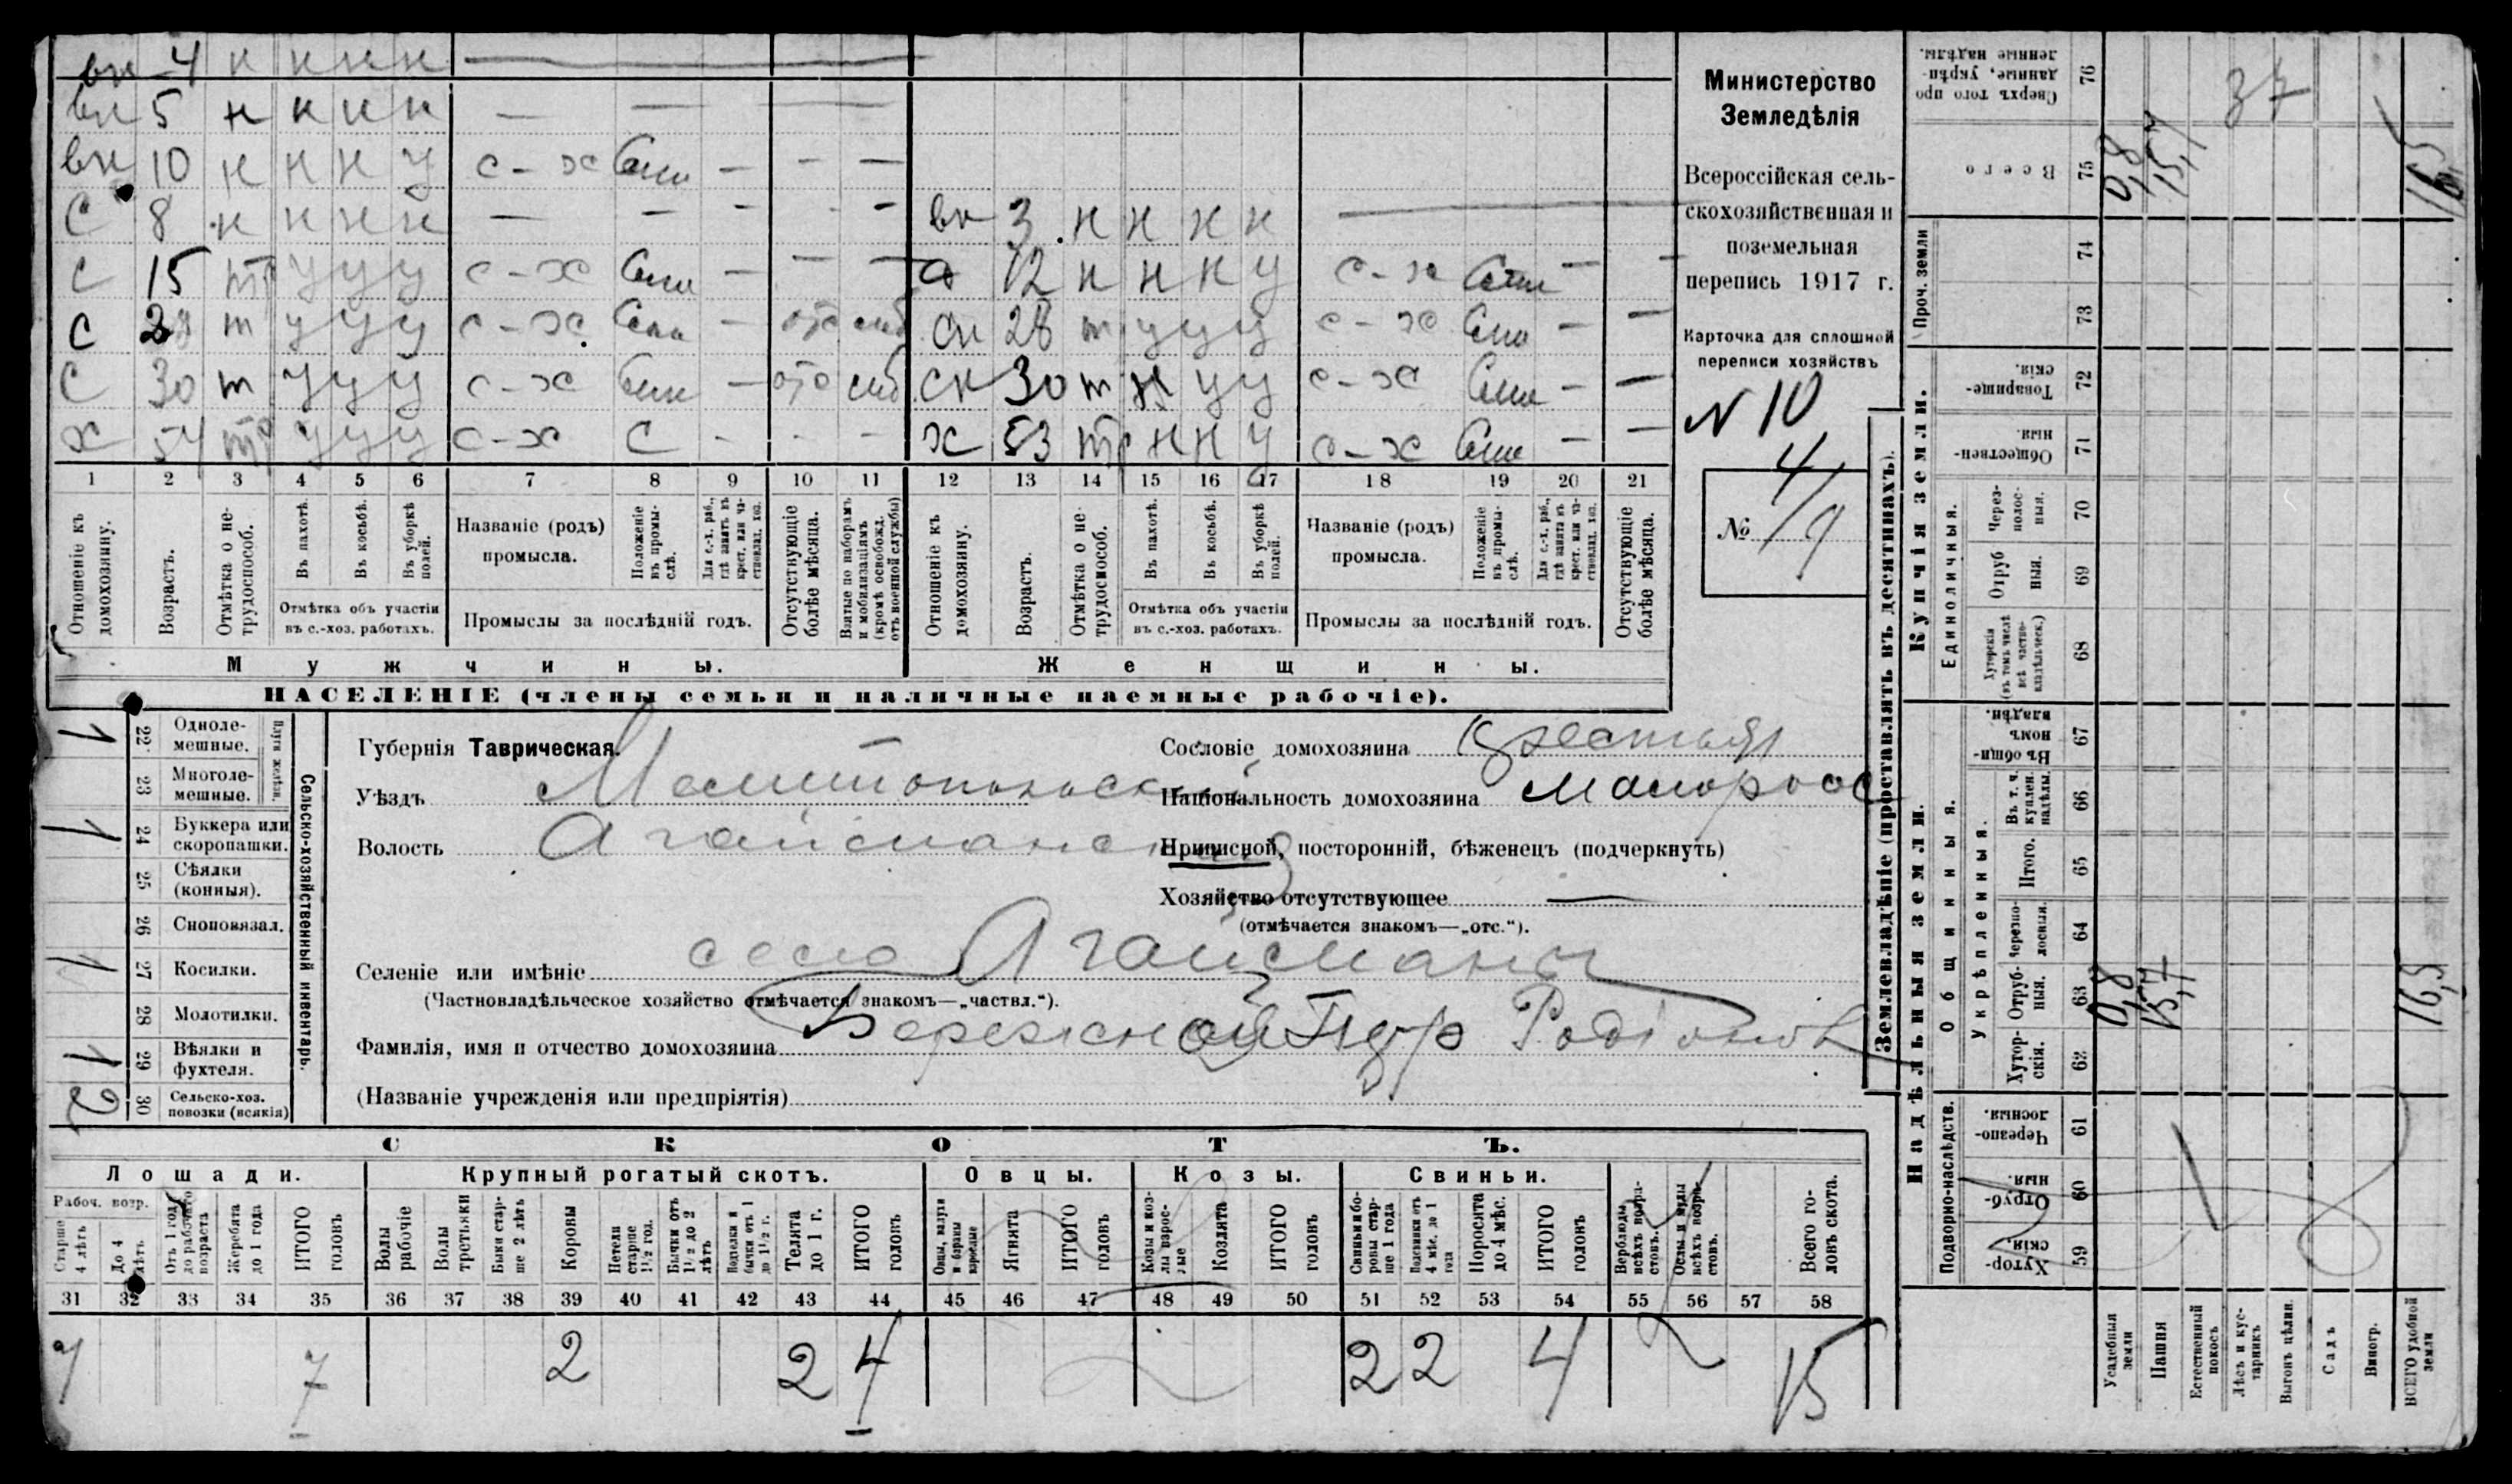 вн 4 н н н н —
вн 5 н н н н — — —
вн 10 н н н у с-х Сем — — —
с 8 н н н н — — — — — вн 3 н н н н —
с 15 п у у у с-х Сем — — — 12 н н н у с-х Сем — —
с 28 т у у у с-х Сем — отс сн 28 т у у у с-х Сем — —
с 30 т у у у с-х Сем — отс сн 30 т н у у с-х Сем — —
х 54 у у у с-х С — — — х 53 н н у с-х Сем — —
1 2 3 4 5 6 7 8 9 10 11 12 13 14 15 16 17 18 19 20 21
Отношеніе къ домохозяину.
Возрастъ.
Отмѣтка о нетрудоспособ.
Въ пахотѣ.
Въ косьбѣ.
Въ уборкѣ полей.
Отмѣтка объ участіи въ с.-хоз. работахъ.
Названіе (родъ) промысла.
Положеніе въ промыслѣ.
Для с.-х. раб., гдѣ занятъ въ крест. или частновлад. хоз.
Промыслы за послѣдній годъ.
Отсутствующіе болѣе мѣсяца.
Взятые по наборамъ и мобилизаціямъ (кромѣ освобожд. отъ военной службы)
Отношеніе къ домохозяину.
Возрастъ.
Отмѣтка о нетрудоспособ.
Въ пахотѣ.
Въ косьбѣ.
Въ уборкѣ полей.
Отмѣтка объ участіи въ с.-хоз. работахъ.
Названіе (родъ) промысла.
Положеніе въ промыслѣ.
Для с.-х. раб., гдѣ занятъ въ крест. или частновлад. хоз.
Промыслы за послѣдній годъ.
Отсутствующіе болѣе мѣсяца.
Мужчины. Женщины.
НАСЕЛЕНІЕ (члены семьи и наличные наемные рабочіе).
Министерство
Земледѣлія
Всероссійская сель-
скохозяйственная и
поземельная
перепись 1917 г.
Карточка для сплошной
переписи хозяйствъ
N 10
№ 4/9
1 22 Одноле-мешные.
23 Многоле-мешные.
Плуги желѣзн.
1 24 Буккера или скоропашки.
25 Сѣялки (конныя).
26 Сноповязал.
1 27 Косилки.
28 Молотилки.
1 29 Вѣялки и фухтеля.
2 30 Сельско-хоз. повозки (всякія)
Сельско-хозяйственный инвентарь.
Губернія Таврическая.
Уѣздъ Мелитопольскій
Волость Агайманская
Селеніе или имѣніе село Агайманы
(Частновладѣльческое хозяйство отмѣчается знакомъ—„частвл.“).
Фамилія, имя и отчество домохозяина Бережной Родіонов
(Названіе учрежденія или предпріятія)
Сословіе домохозяина крестьян
Національность домохозяина малоросс
Приписной, посторонній, бѣженецъ (подчеркнуть)
Хозяйство отсутствующее —
(отмѣчается знакомъ—„отс.“).
СКОТЪ.
Лошади. Крупный рогатый скотъ. Овцы. Козы. Свиньи.
Рабоч. возр.
Старше 4 лѣтъ
До 4 лѣтъ
Отъ 1 года до рабочаго возраста
Жеребята до 1 года
ИТОГО головъ
Волы рабочіе
Волы третьяки
Быки старше 2 лѣтъ
Коровы
Нетели старше 1½ год.
Бычки отъ 1½ до 2 лѣтъ
Подтелки и бычки отъ 1 до 1½ г.
Телята до 1 г.
ИТОГО головъ
Овцы, валухи и бараны взрослые
Ягнята
ИТОГО головъ
Козы и козлы взрослые
Козлята
ИТОГО головъ
Свиньи и боровы старше 1 года
Подсвинки отъ 4 мѣс. до 1 года
Поросята до 4 мѣс.
ИТОГО головъ
Верблюды всѣхъ возрастовъ.
Ослы и мулы всѣхъ возрастовъ.
Всего головъ скота.
31 32 33 34 35 36 37 38 39 40 41 42 43 44 45 46 47 48 49 50 51 52 53 54 55 56 57 58
7 7 2 2 4 2 2 4 15
Землевладѣніе (проставлять въ десятинахъ).
Надѣльныя земли.
Купчія земли.
Проч. земли
Подворно-наслѣдств.
Общинныя.
Укрѣпленныя.
Единоличныя.
Сверхъ того проданные, укрѣпленные надѣлы. 76 37
Всего 75 0,8 15,7 16,5
74
73
Товарищескія. 72
Общественныя. 71
Черезполосныя. 70
Отрубныя. 69
Хуторскія (въ томъ числѣ всѣ частновладѣльческ.) 68
Въ общинномъ владѣн. 67
Въ т. ч. куплен. надѣлы. 66
Итого. 65
Черезполосныя. 64
Отрубныя. 63 0,8 15,7 16,5
Хуторскія. 62
Черезполосныя. 61
Отрубныя. 60
Хуторскія. 59
Усадебныя земли
Пашня
Естественный покосъ
Лѣсъ и кустарникъ
Выгонъ цѣлин.
Садъ
Виногр.
ВСЕГО удобной земли